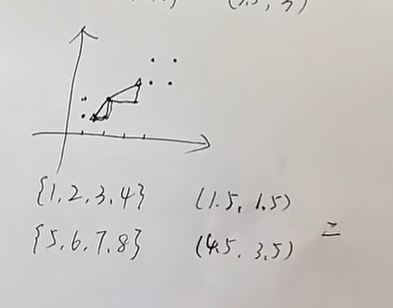 {1,2,3,4} (1.5, 1.5)
{5,6,7,8} (4.5, 3.5) =